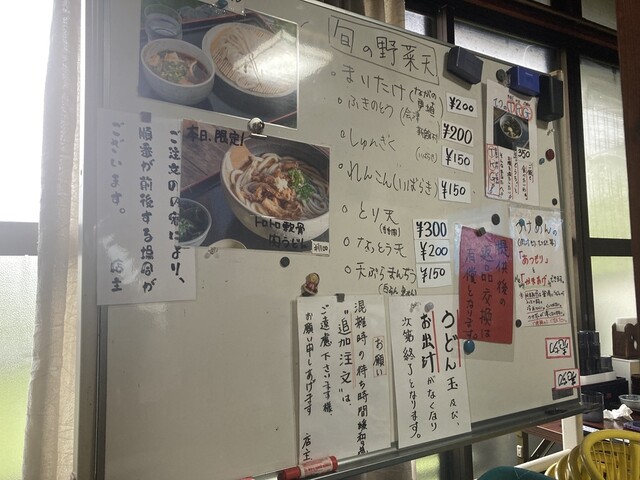 旬の野菜天
・まいたけ
¥200
・ふきのとう
¥200
・しゅんぎく
¥150
・れんこん(いばらき)
¥150
・とり天
¥300
・なっとう天
¥200
・天ぷらまんぢう
¥150
本日、限定!
トロトロ軟骨
肉うどん
ご注文の内容により、
順番が前後する場合が
ございます。
店主
お願い
混雑時の待ち時間緩和の為
"追加注文"は
ご遠慮下さいます様、
お願い申しあげます
店主
うどん玉及び、
お出汁がなくなり
次第終了となります。
提供後の
返品交換は
有償となります。
350
つけめんの
「あっさり」